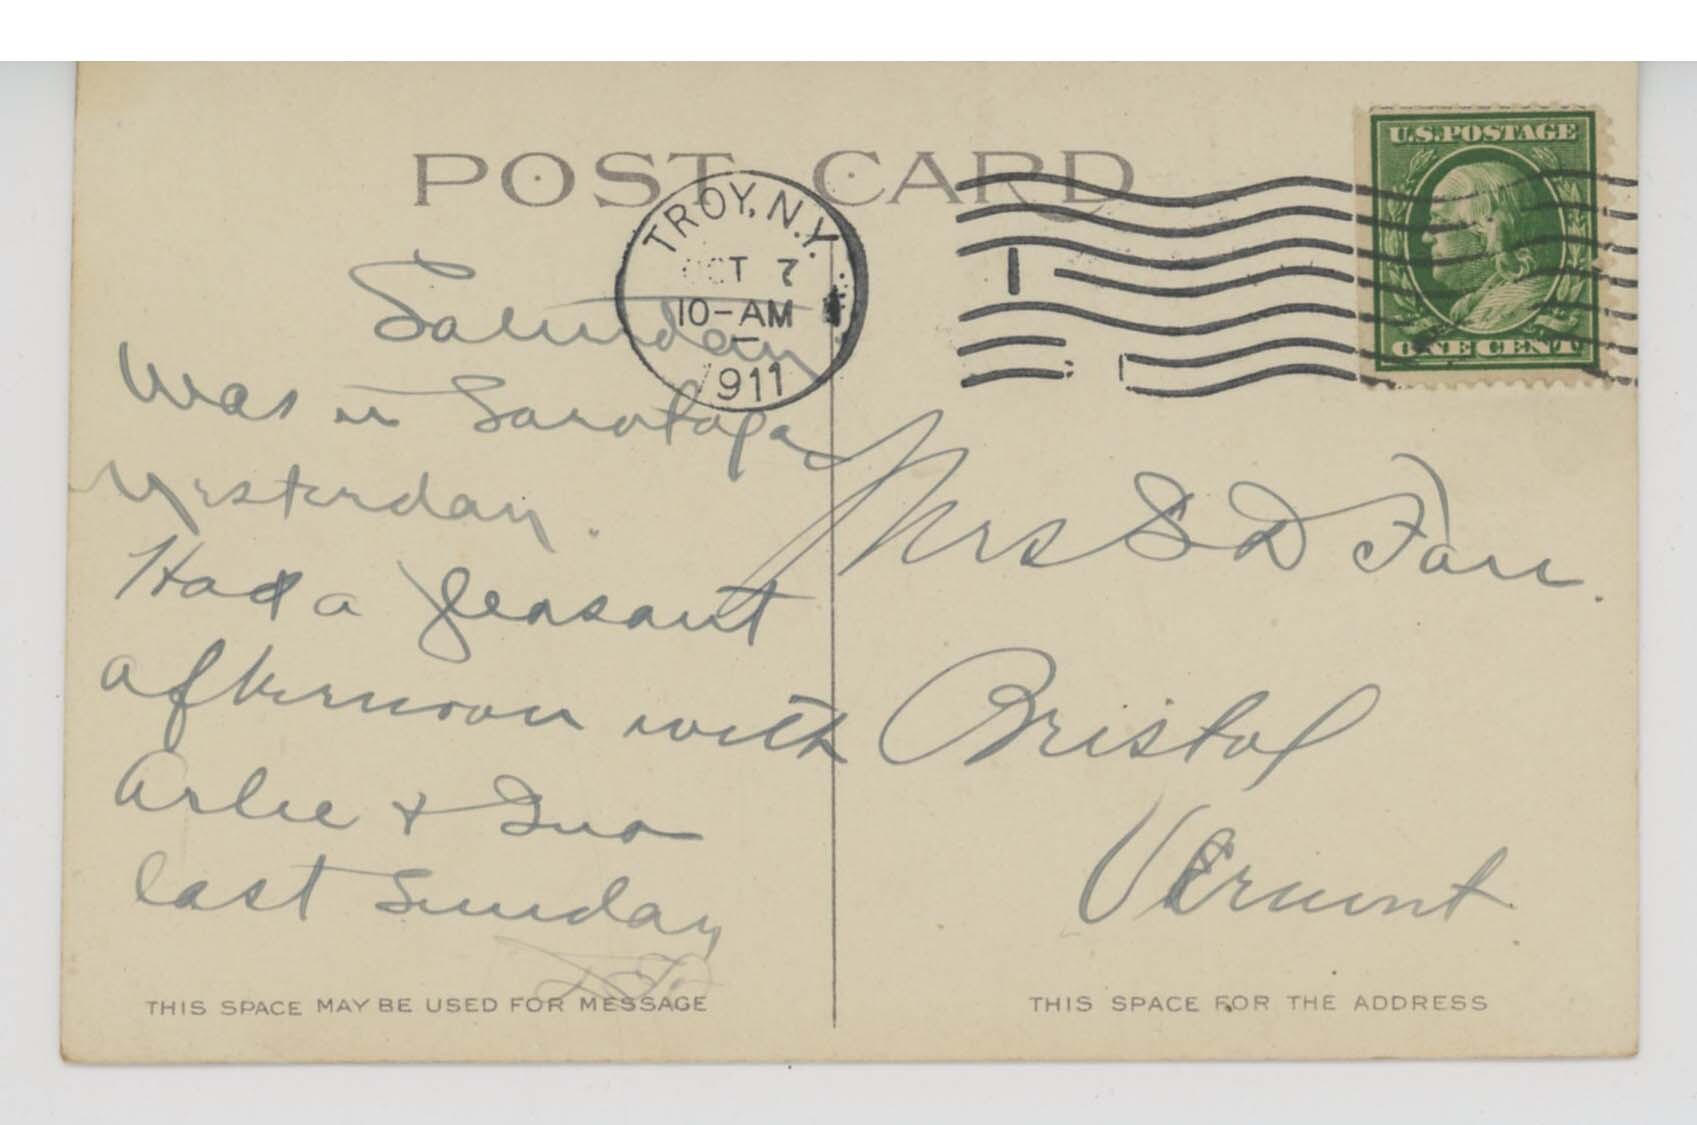 POST CARD
U.S. POSTAGE
ONE CENT
TROY, N.Y.
OCT 7
10-AM
1911
1
Saturday
Was in Saratoga
yesterday.
Had a pleasant
afternoon with
Arlie +
last Sunday
Mrs S D Farr.
Bristol
Vermont.
THIS SPACE MAY BE USED FOR MESSAGE
THIS SPACE FOR THE ADDRESS